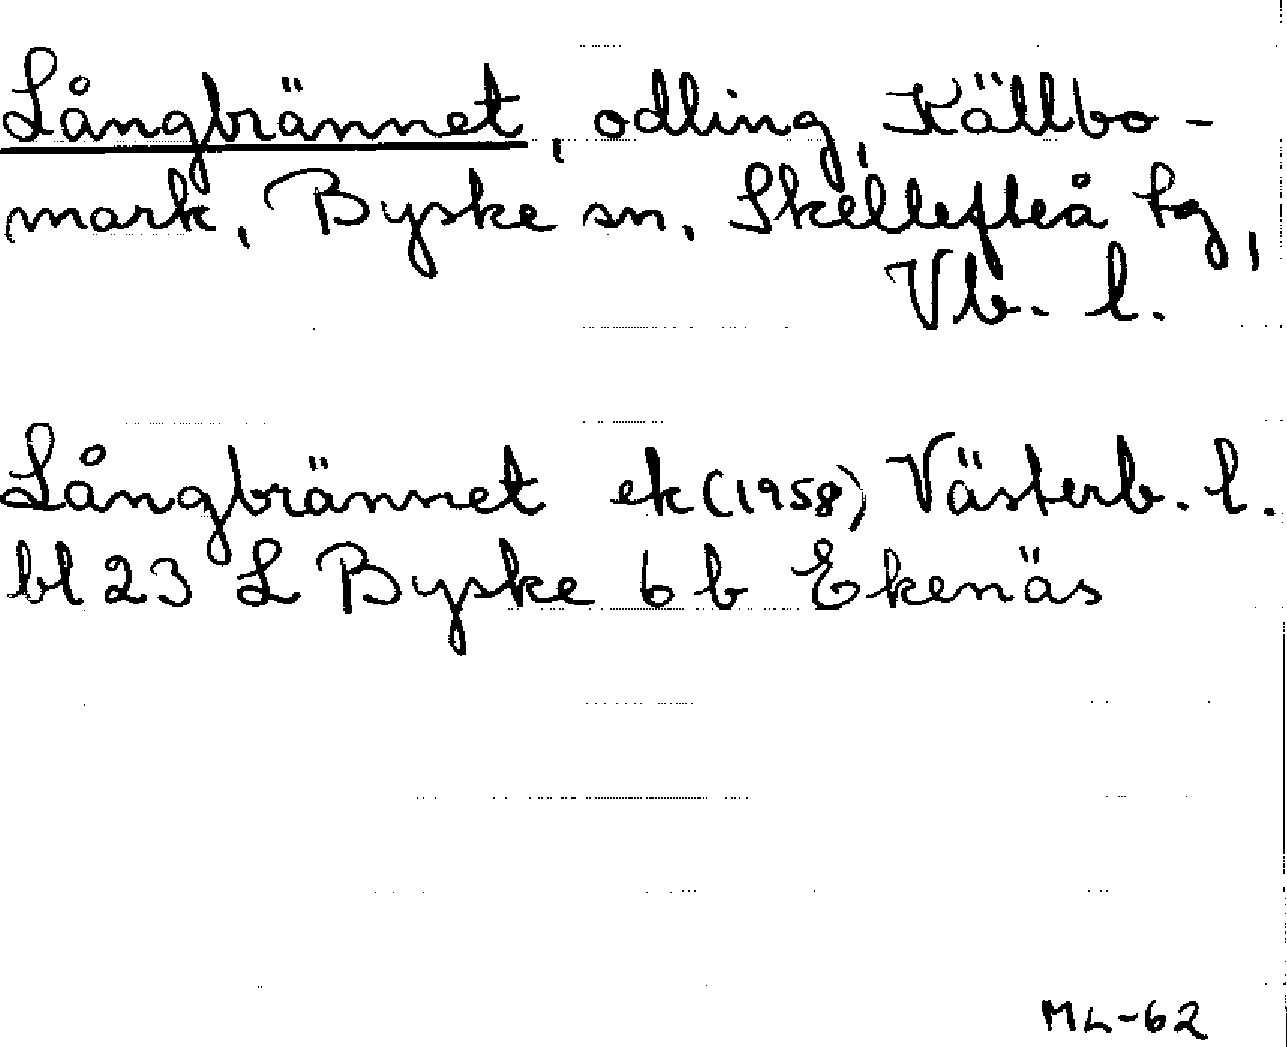 Långbrännet, odling, Källbo-
mark, Byske sn, Skellefteå tg,
Vb. l.
Långbrännet ek (1958) Västerb. l.
bl 23 L Byske 6 b Ekenäs
ML-62